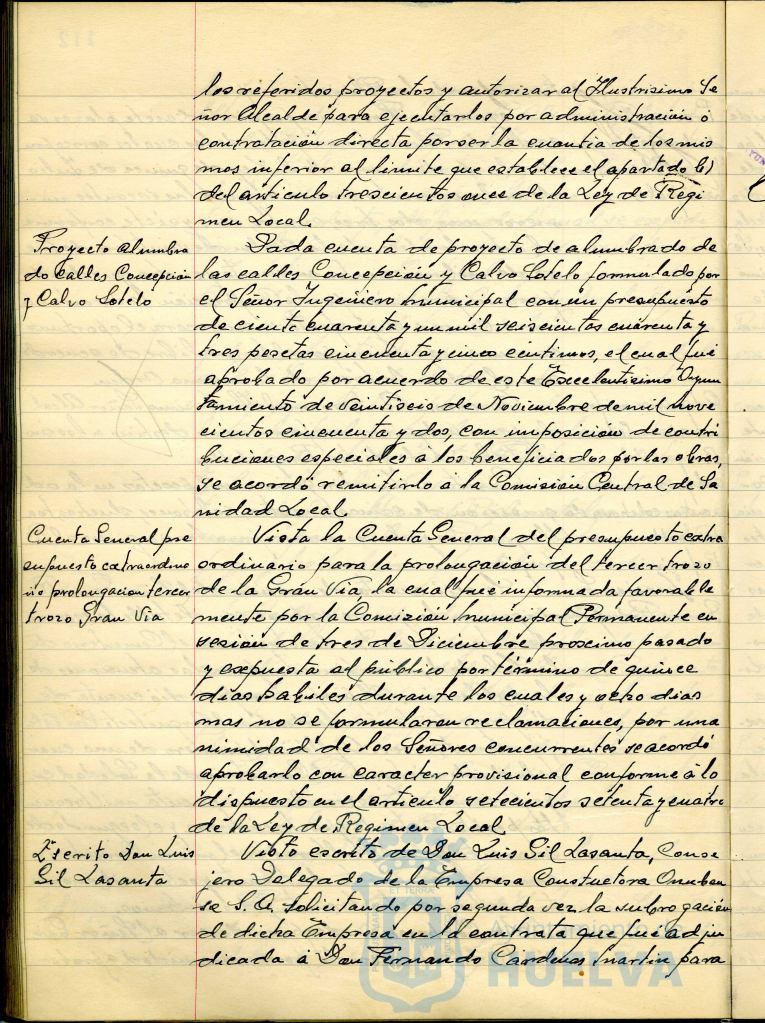 los referidos proyectos y autorizar al Ilustrisimo Se
ñor Alcalde para ejecutarlos por administración ó
contratación directa por ser la cuantia de los mis
mos inferior al limite que establece el apartado b)
del articulo trescientos once de la Ley de Regi
men Local.
Proyecto alumbra
do calles Concepción
y Calvo Sotelo
Dada cuenta de proyecto de alumbrado de
las calles Concepción y Calvo Sotelo formulado por
el Señor Ingeniero Municipal con un presupuesto
de ciento cuarenta y un mil seiscientas cuarenta y
tres pesetas cincuenta y cinco centimos, el cual fué
aprobado por acuerdo de este Excelentisimo Ayun
tamiento de veintiseis de Noviembre de mil nove
cientos cincuenta y dos, con imposición de contri
buciones especiales á los beneficiados por las obras,
se acordó remitirlo á la Comisión Central de Sa
nidad Local.
Cuenta General pre
supuesto extraordina
rio prolongación tercer
trozo Gran Via
Vista la Cuenta General del presupuesto extra
ordinario para la prolongación del tercer trozo
de la Gran Via, la cual fué informada favorable
mente por la Comisión Municipal Permanente en
sesión de tres de Diciembre proximo pasado
y expuesta al público por término de quince
dias habiles durante los cuales y ocho dias
mas no se formularon reclamaciones, por una
nimidad de los Señores concurrentes se acordó
aprobarlo con caracter provisional conforme á lo
dispuesto en el articulo setecientos setenta y cuatro
de la Ley de Regimen Local.
2º escrito Don Luis
Gil Lasanta
Visto escrito de Don Luis Gil Lasanta, Conse
jero Delegado de la Empresa Constructora Onuben
se S.A. solicitando por segunda vez la subrogación
de dicha Empresa en la contrata que fué adju
dicada á Don Fernando Cárdenas Martin para
HUELVA